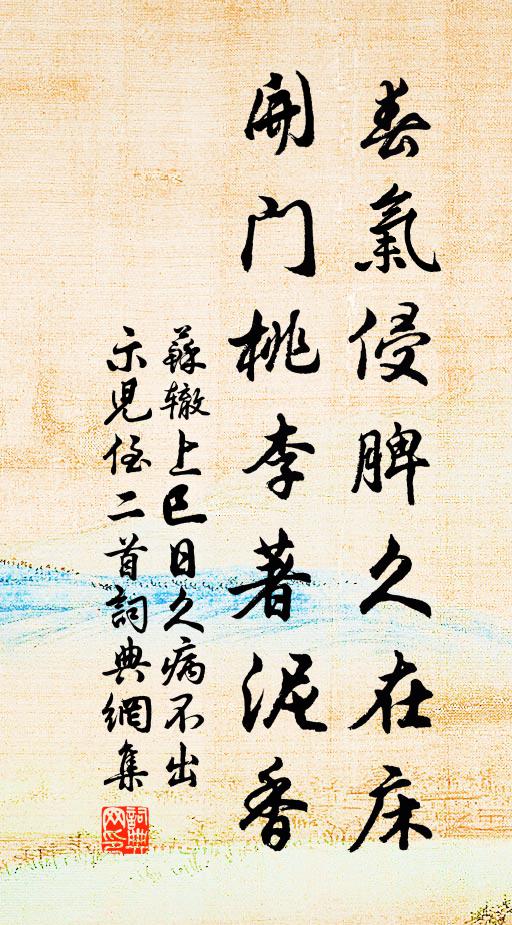 春氣侵脾久在床
開门桃李著泥香
蘇辙上巳日久病不出
示児侄二首詞典網集
詞典网